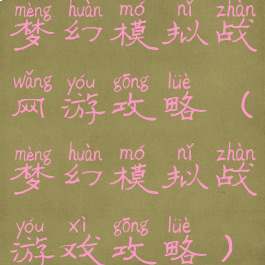 mèng huàn mó nǐ zhàn
梦幻模拟战
wǎng yóu gōng lüè
网游攻略（
mèng huàn mó nǐ zhàn
梦幻模拟战
yóu xì gōng lüè
游戏攻略）